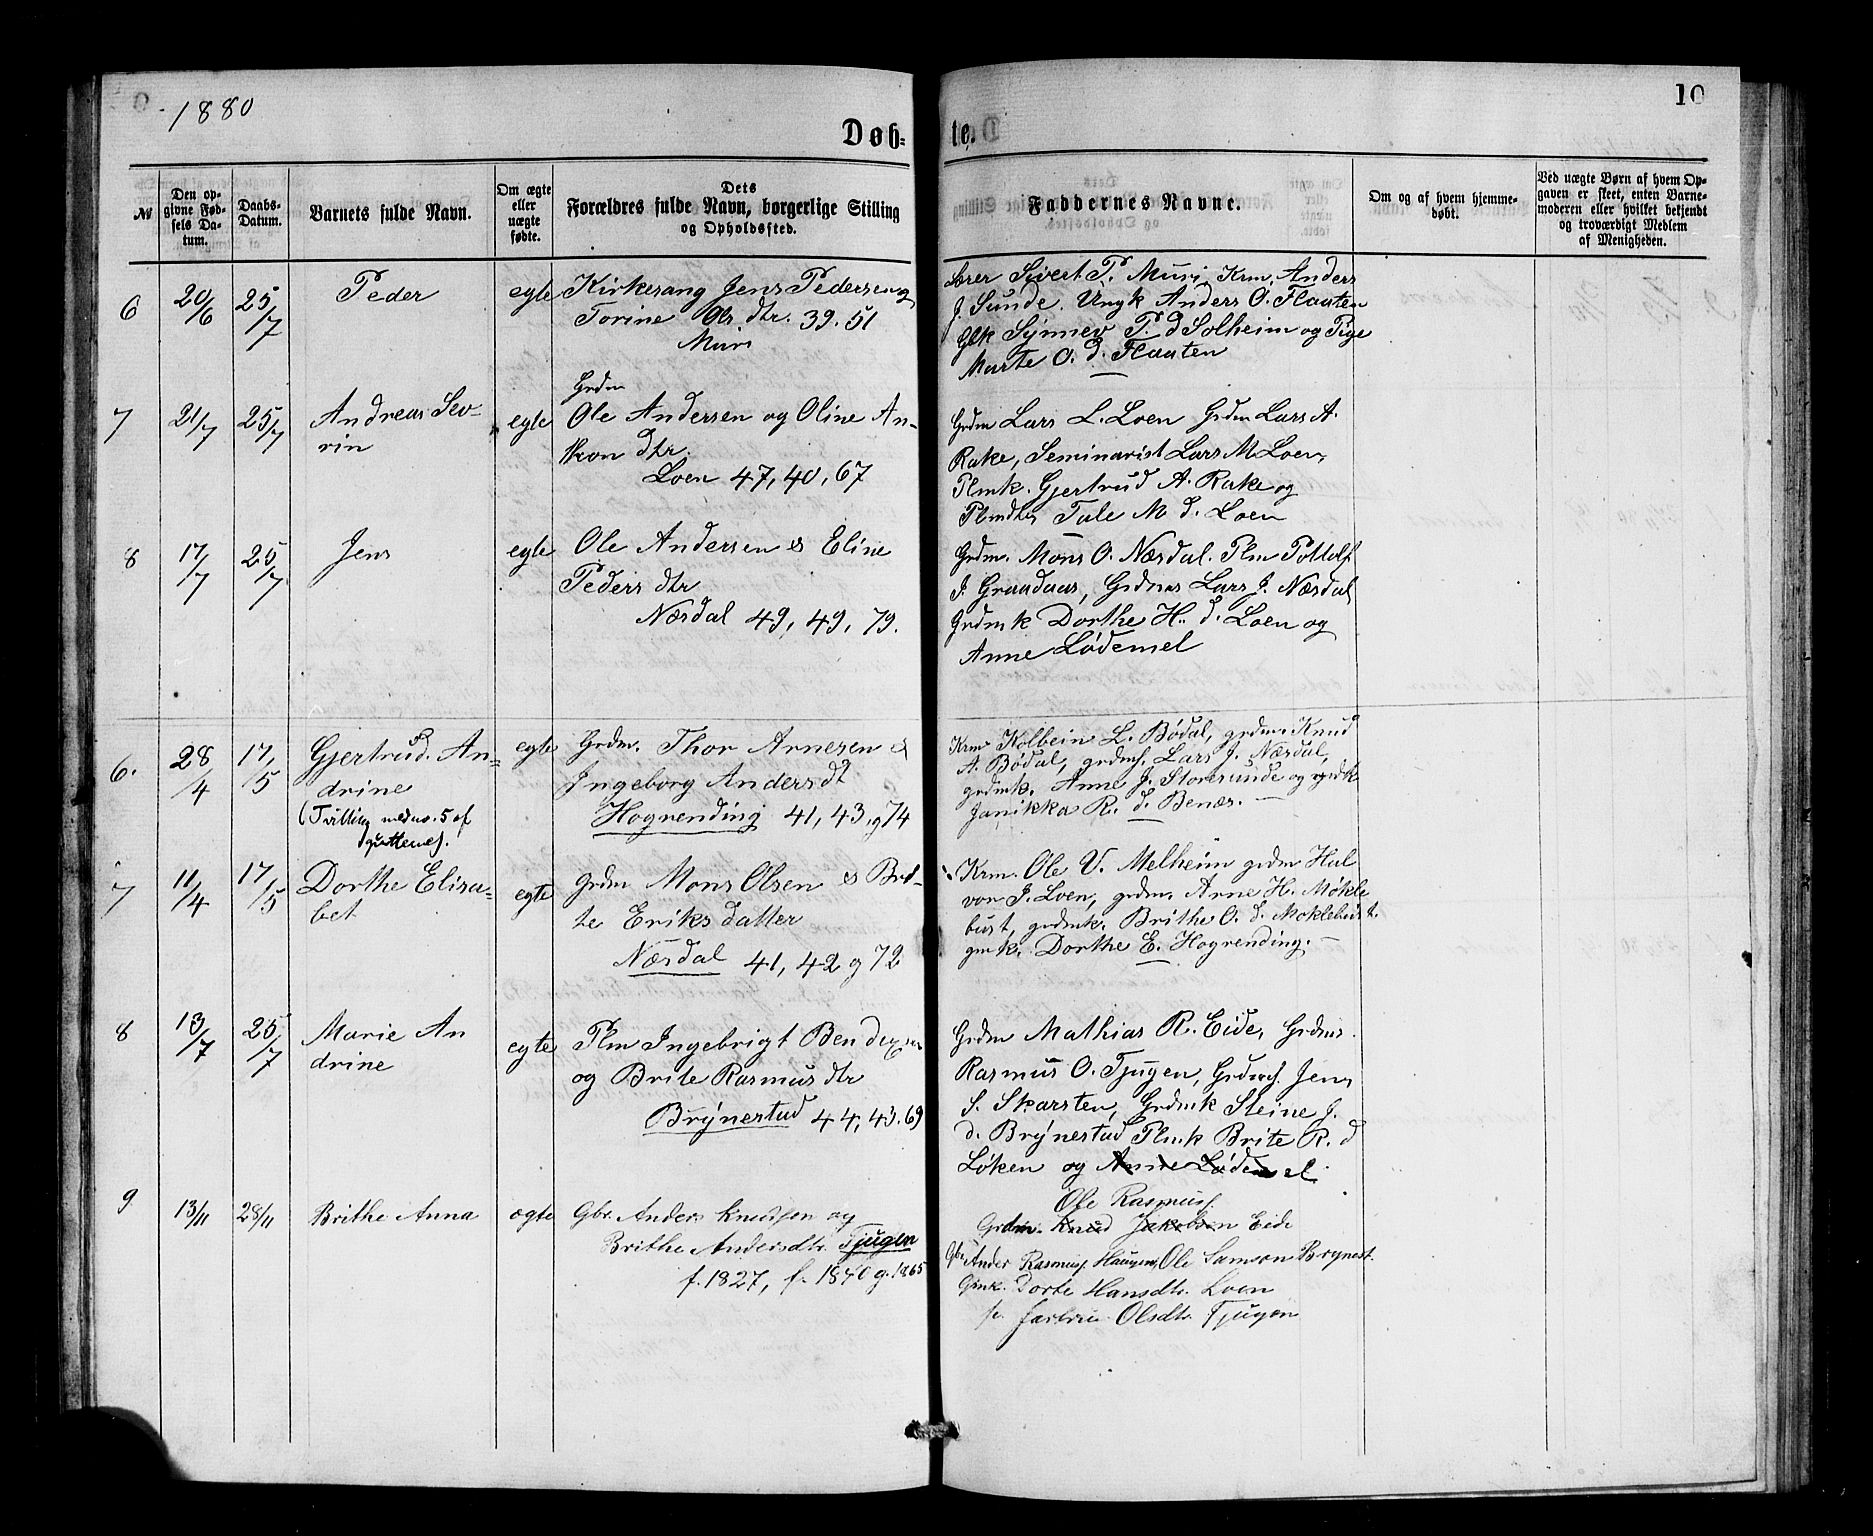 1880
10
Døb=
te.
№
Den op=
givne Fød=
sels Da=
tum.
Daabs=
Datum.
Barnets fulde Navn.
Om ægte
eller
uægte
fødte.
Dets
Forældres fulde Navn, borgerlige Stilling
og Opholdssted.
Faddernes Navne.
Om og af hvem hjemme=
døbt.
Ved uægte Børn af hvem Op=
gaven er skeet, enten Barne=
moderen eller hvilket bekjendt
og troværdigt Medlem
af Menigheden.
6 20/6 25/7 Peder egte Kirkesang Jens Pedersen og
Torine Ol. dtr. 39. 51
Muri
Lærer Sivert P. Muri, Krm. Anders
J. Sunde. Ungk Anders O. Flaaten
Gbk Synnev P. d Solheim og Pige
Marte O. d. Flaaten
7 21/7 25/7 Andreas Sev-
rin
egte
Grdm
Ole Andersen og Oline An-
dtr.
Loen 47, 40, 67
Grdm Lars L. Loen Grdm Lars A.
Rake, Seminarist Lars M. Loen,
Plmk. Gjertrud A. Rake og
Tale M. d. Loen
8 17/7 25/7 Jens egte Ole Andersen & Eline
Peders dtr
Næsdal 49, 49, 79.
Grdm. Mons O. Næsdal. Plm Pottolf
J. Lars J. Næsdal
Grdmk Dorthe H. d. Loen og
Anne Lødemel
6. 28/4 17/5 Gjertrud. An=
drine
(Tvilling med no. 5 af
guttene).
egte Grdm. Thor Arnesen &
Ingeborg Anders dt
Hogrending 41, 43, g 74
Krm Kolbein L. Bødal, grdm. Knud
A. Bødal, grdms. Lars J. Næsdal,
grdmk. Anne J. Storesunde og grdk
Janikka R. d. Benæs. —
7 11/4 17/5 Dorthe Elisa-
bet
egte grdm Mons Olsen & Brit-
te Eriks datter
Næsdal 41, 42 g 72
Krm. Ole V. Melheim grdm Hal
vor J. Loen, grdm. Arne H. Møkle
bust, grdmk. Brithe O. d. Moklebust.
gmk. Dorthe E. Hogrending. —
8 13/7 25/7 Marie An
drine
egte Plm Ingebrigt Bendixsen
og Brite Rasmus dtr
Brynestad 44, 43. 69
Grdm Mathias R. Eide, Grdms.
Rasmus O. Tjugen, Grdms. Jens
S. Skarsten, Grdmk Steine J.
d. Brynestad Plmk Brite R. d
Løken og Anne Lødemel
9 13/11 28/11 Brithe Anna ægte Gbr. Anders Knudsen og
Brithe Andersdtr. Tjugen
f. 1827, f. 1840 g. 1865
Ole Rasmus.
Grdm. Knud Jakobsen Eide
Gbr. Ander Rasmus. Haugen, Ole Samson Brynest.
Gmk. Dorte Hansdtr. Loen
Olsdtr. Tjugen